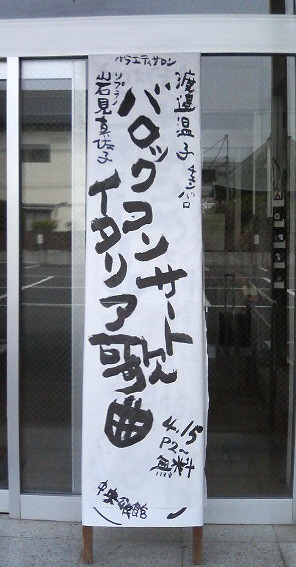 バラエティサロン
渡邉温子 チェンバロ
バロックコンサート
イタリア歌曲
ソプラノ
岩見真佐子
4.15
P2〜
無料
中央会館